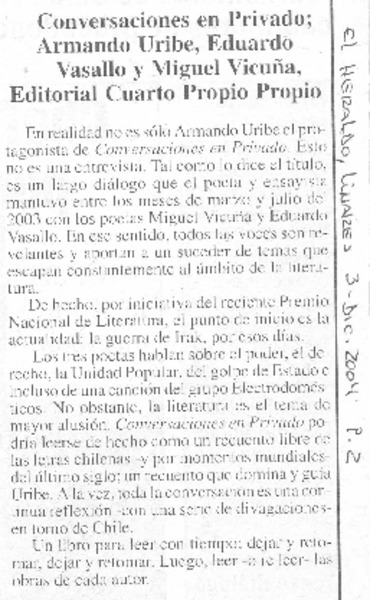 Conversaciones en Privado;
Armando Uribe, Eduardo
Vasallo y Miguel Vicuña,
Editorial Cuarto Propio Propio
En realidad no es sólo Armando Uribe el pro-
tagonista de Conversaciones en Privado. Esto
no es una entrevista. Tal como lo dice el título,
es un largo diálogo que el poeta y ensayista
mantuvo entre los meses de marzo y julio del
2003 con los poetas Miguel Vicuña y Eduardo
Vasallo. En ese sentido, todas las voces son re-
velantes y aportan a un suceder de temas que
escapan constantemente al ámbito de la litera-
tura.
De hecho, por iniciativa del reciente Premio
Nacional de Literatura, el punto de inicio es la
actualidad: la guerra de Irak, por esos días.
Los tres poetas hablan sobre el poder, el de-
recho, la Unidad Popular, del golpe de Estado e
incluso de una canción del grupo Electrodomés-
ticos. No obstante, la literatura es el tema de
mayor alusión. Conversaciones en Privado po-
dría leerse de hecho como un recuento libre de
las letras chilenas -y por momentos mundiales-
del último siglo; un recuento que domina y guía
Uribe. A la vez, toda la conversación es una con-
tinua reflexión -con una serie de divagaciones-
en torno de Chile.
Un libro para leer con tiempo; dejar y reto-
mar, dejar y retomar. Luego, leer -a re leer- las
obras de cada autor.
EL HERALDO, LINARES 3-Dic. 2004. P. 2